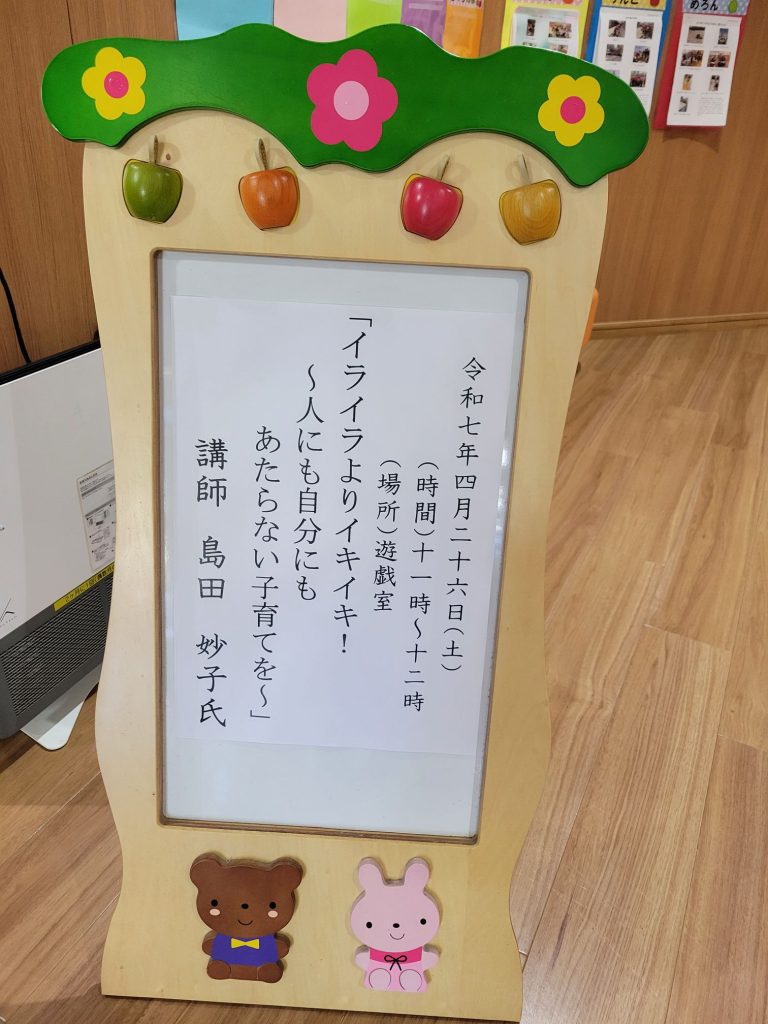 令和七年四月二十六日(土)
(時間)十一時～十二時
(場所)遊戯室
「イライラよりイキイキ!
～人にも自分にも
あたらない子育てを～」
講師 島田 妙子氏
りんご
めろん